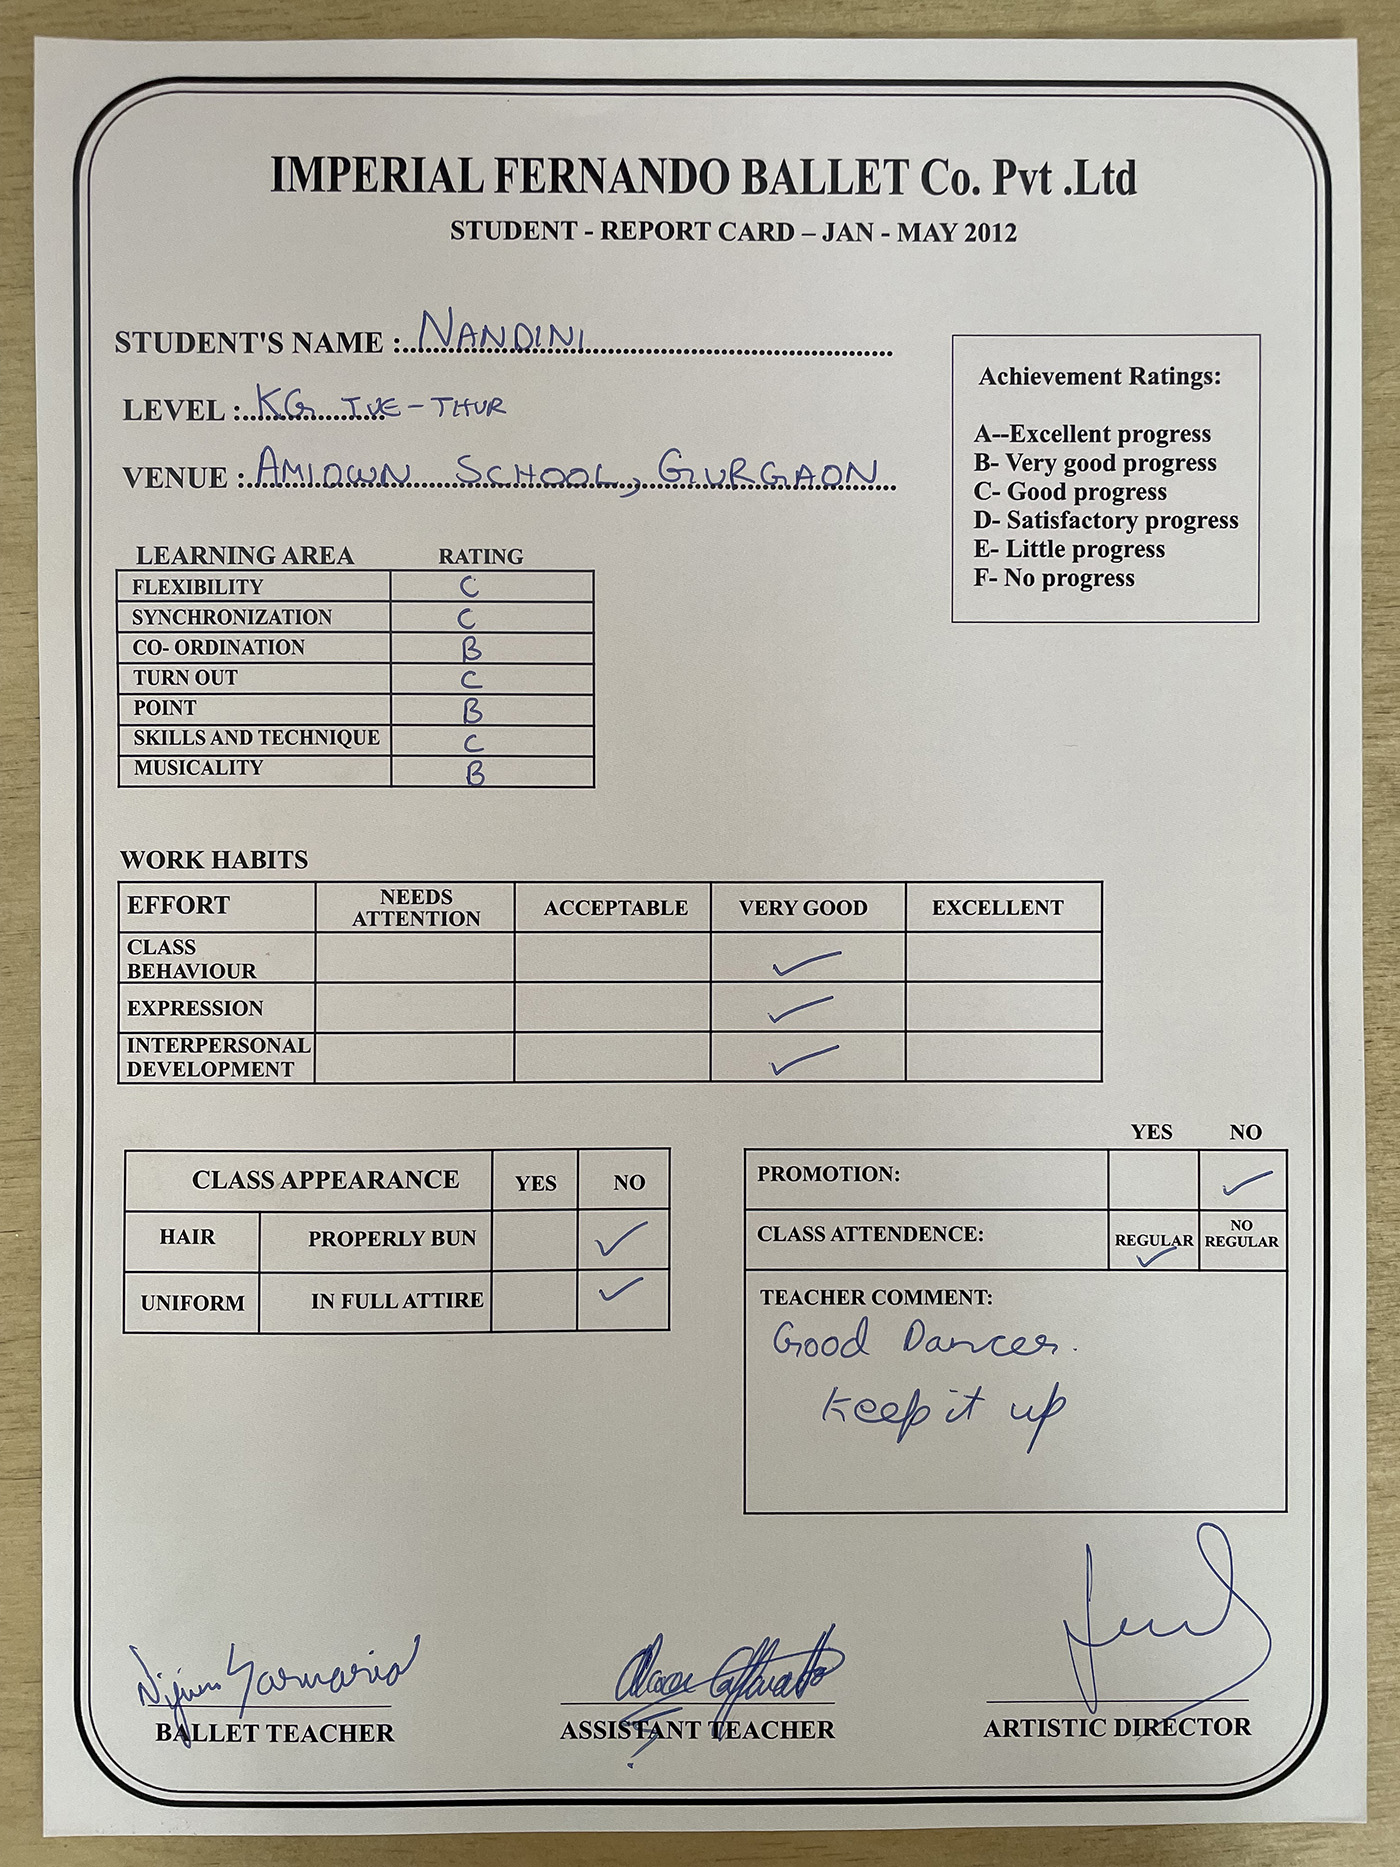 IMPERIAL FERNANDO BALLET Co. Pvt .Ltd
STUDENT - REPORT CARD – JAN - MAY 2012
STUDENT'S NAME : NANDINI
LEVEL : KG TUE - THUR
VENUE : AMIOWN SCHOOL, GURGAON
Achievement Ratings:
A--Excellent progress
B- Very good progress
C- Good progress
D- Satisfactory progress
E- Little progress
F- No progress
LEARNING AREA RATING
FLEXIBILITY C
SYNCHRONIZATION C
CO- ORDINATION B
TURN OUT C
POINT B
SKILLS AND TECHNIQUE C
MUSICALITY B
WORK HABITS
EFFORT NEEDS ATTENTION ACCEPTABLE VERY GOOD EXCELLENT
CLASS BEHAVIOUR ✓
EXPRESSION ✓
INTERPERSONAL DEVELOPMENT ✓
CLASS APPEARANCE YES NO
HAIR PROPERLY BUN ✓
UNIFORM IN FULL ATTIRE ✓
YES NO
PROMOTION: ✓
CLASS ATTENDENCE: REGULAR ✓ NO REGULAR
TEACHER COMMENT:
Good Dancer.
Keep it up
BALLET TEACHER
ASSISTANT TEACHER
ARTISTIC DIRECTOR